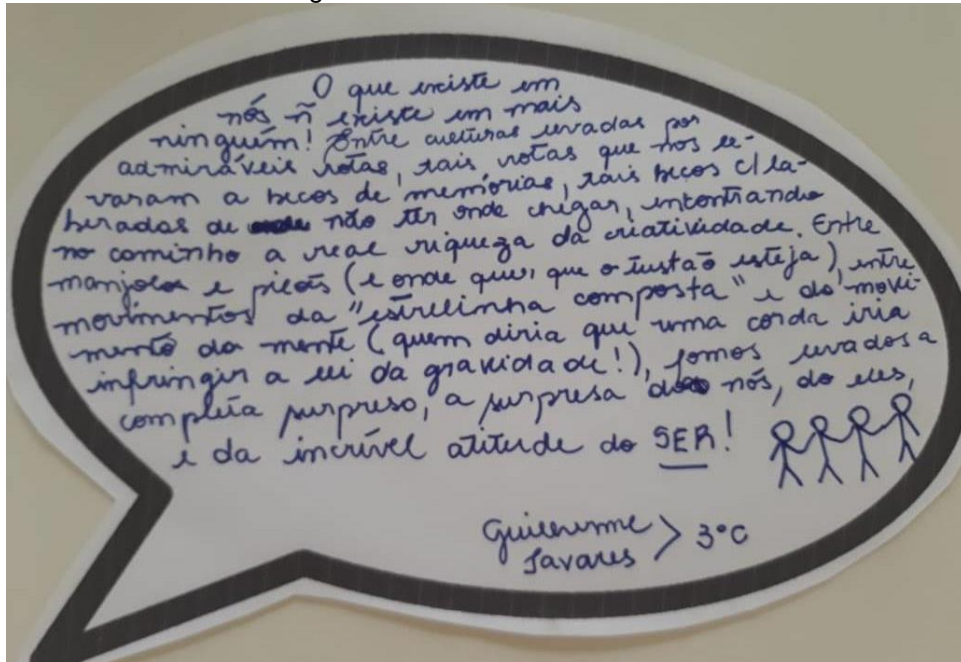 O que existe em
nós ñ existe em mais
ninguém! Entre culturas levadas por
admiráveis rotas, tais rotas que nos le-
varam a becos de memórias, tais becos c/ la-
beradas de não ter onde chegar, encontrando
no caminho a real riqueza da criatividade. Entre
manjolos e picoãs (e onde quer que o tustão esteja), entre
movimentos da "estrelinha composta" e do movi-
mento da mente (quem diria que uma corda iria
infringir a lei da gravidade!), fomos levados a
completa surpreso, a surpresa do nós, do eles,
e da incrível atitude do SER!
Guilherme
Tavares > 3°C